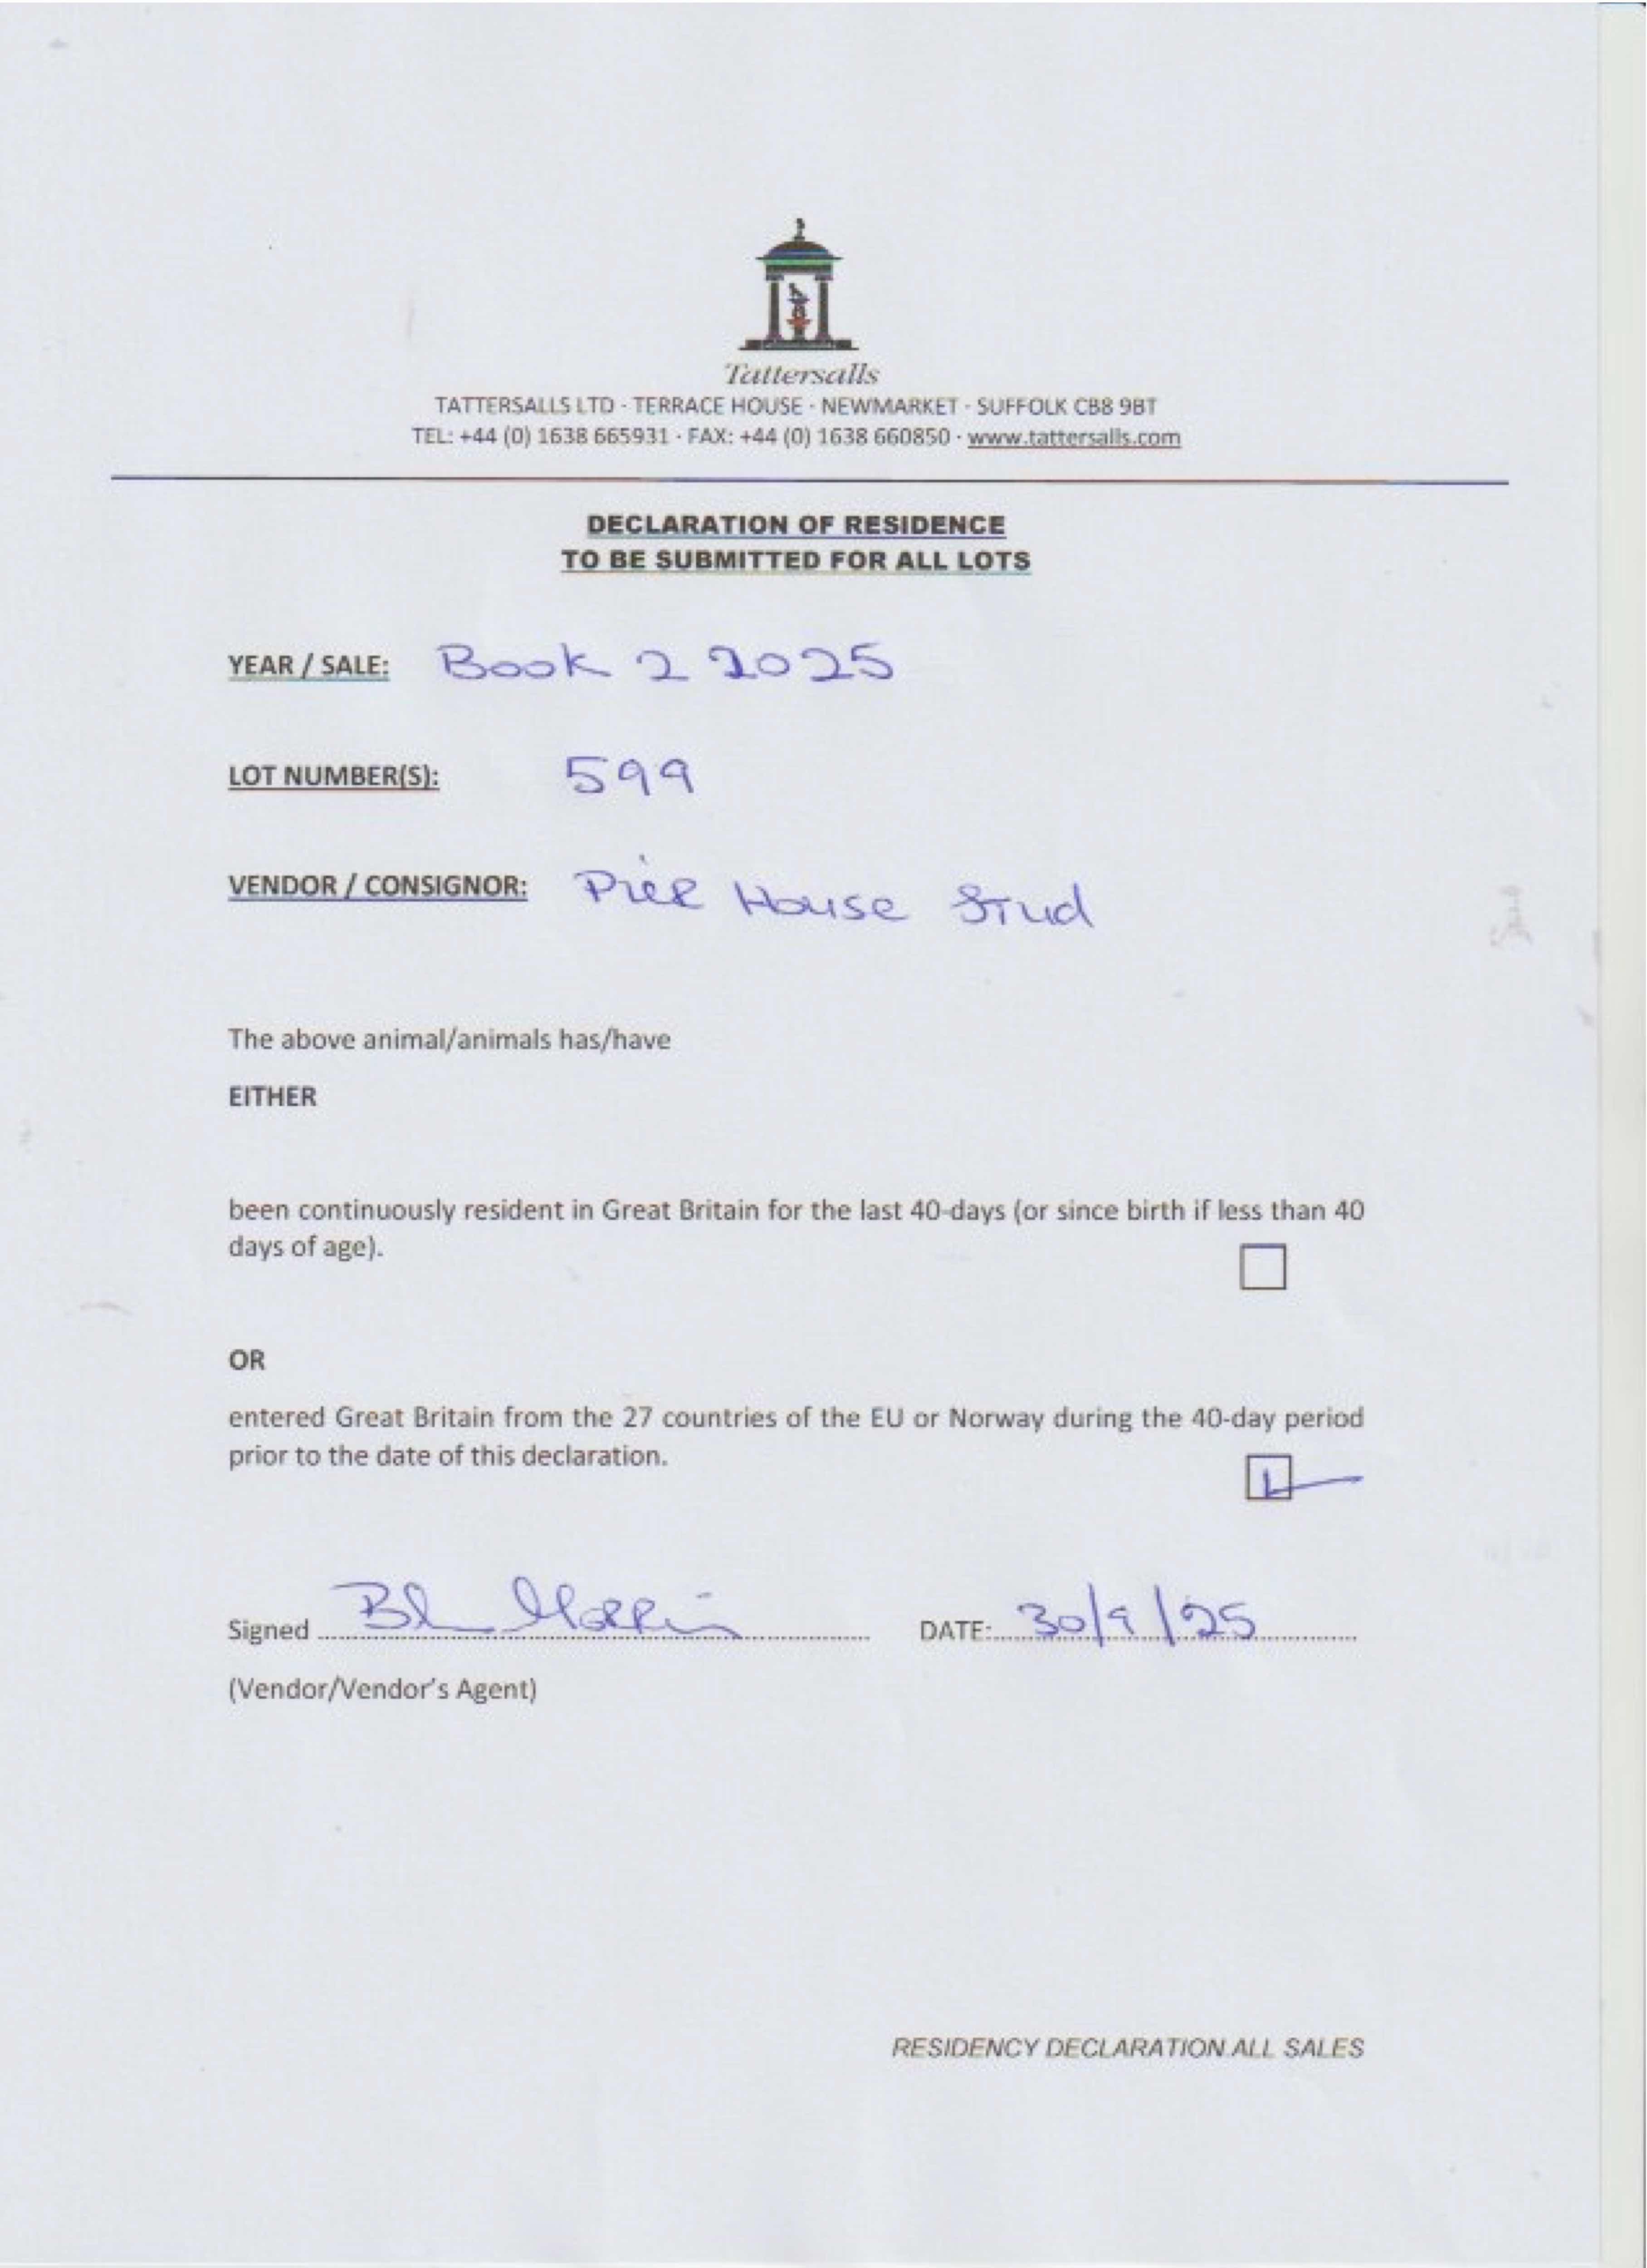 Tattersalls
TATTERSALLS LTD - TERRACE HOUSE - NEWMARKET - SUFFOLK CB8 9BT
TEL: +44 (0) 1638 665931 - FAX: +44 (0) 1638 660850 - www.tattersalls.com
DECLARATION OF RESIDENCE
TO BE SUBMITTED FOR ALL LOTS
YEAR / SALE: Book 2 2025
LOT NUMBER(S): 599
VENDOR / CONSIGNOR: Pier House Stud
The above animal/animals has/have
EITHER
been continuously resident in Great Britain for the last 40-days (or since birth if less than 40
days of age).
OR
entered Great Britain from the 27 countries of the EU or Norway during the 40-day period
prior to the date of this declaration.
Signed DATE: 30/9/25
(Vendor/Vendor's Agent)
RESIDENCY DECLARATION ALL SALES